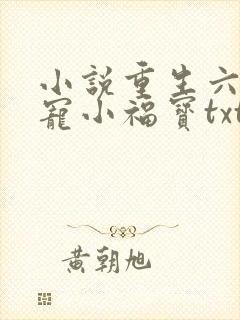 小說重生六
寵小福寶txt
黃朝旭